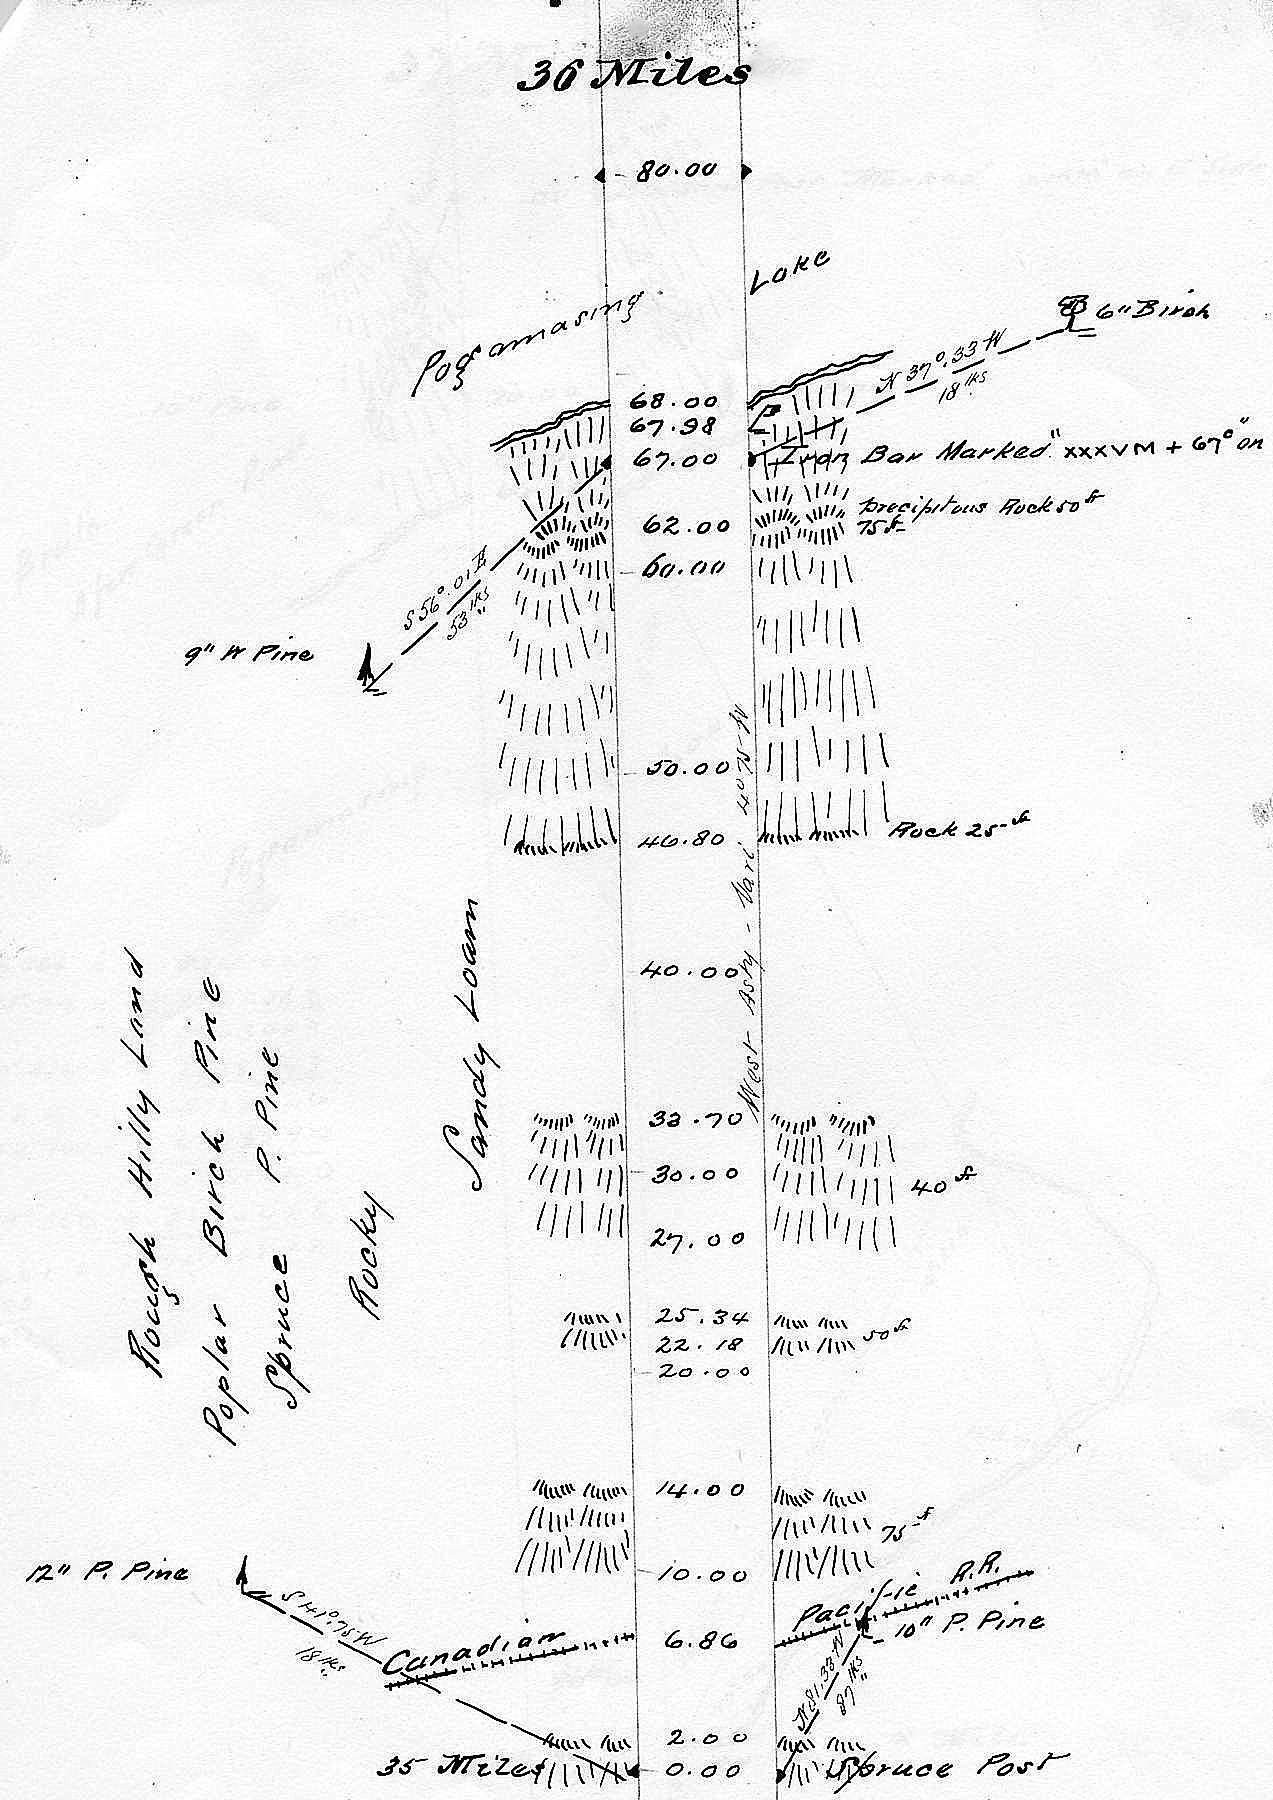 36 Miles
80.00
Pogamasing Lake
6" Birch
N 37°.33 W
18 lks
68.00
67.98
67.00
Iron Bar Marked "XXXVM + 67°" on
Precipitous Rock 50 ft
75 ft
62.00
60.00
S 56°.01 E
53 lks
9" W Pine
50.00
46.80
Rock 25 ft
West Asty - Vari. 4°75 W
40.00
Sandy Loam
Rough Hilly Land
Poplar Birch Pine
Spruce P. Pine
Rocky
33.70
30.00
40 ft
27.00
25.34
22.18
50 ft
20.00
14.00
75 ft
10.00
12" P. Pine
S 41°.75 W
18 lks
Canadian Pacific R.R.
6.86
10" P. Pine
N 81.33 W
87 lks
2.00
35 Miles
0.00
Spruce Post